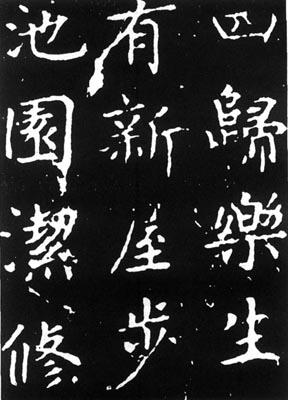 四歸樂生
有新屋步
池園潔修